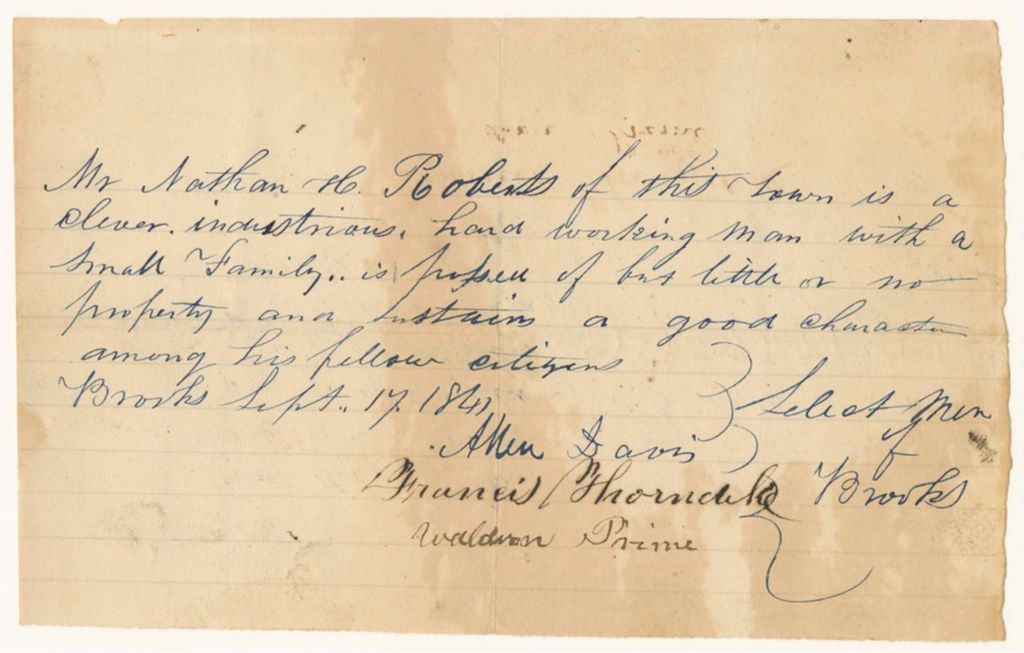 Mr Nathan H. Roberts of this town is a
clever. industrious, hard working man with a
small Family.. is possed of but little or no
property and sustains a good character
among his fellow citizens
Brooks Sept. 17. 1841
Select Men
of
Brooks
Allen Davis
Francis Thorndike
Waldron Prime